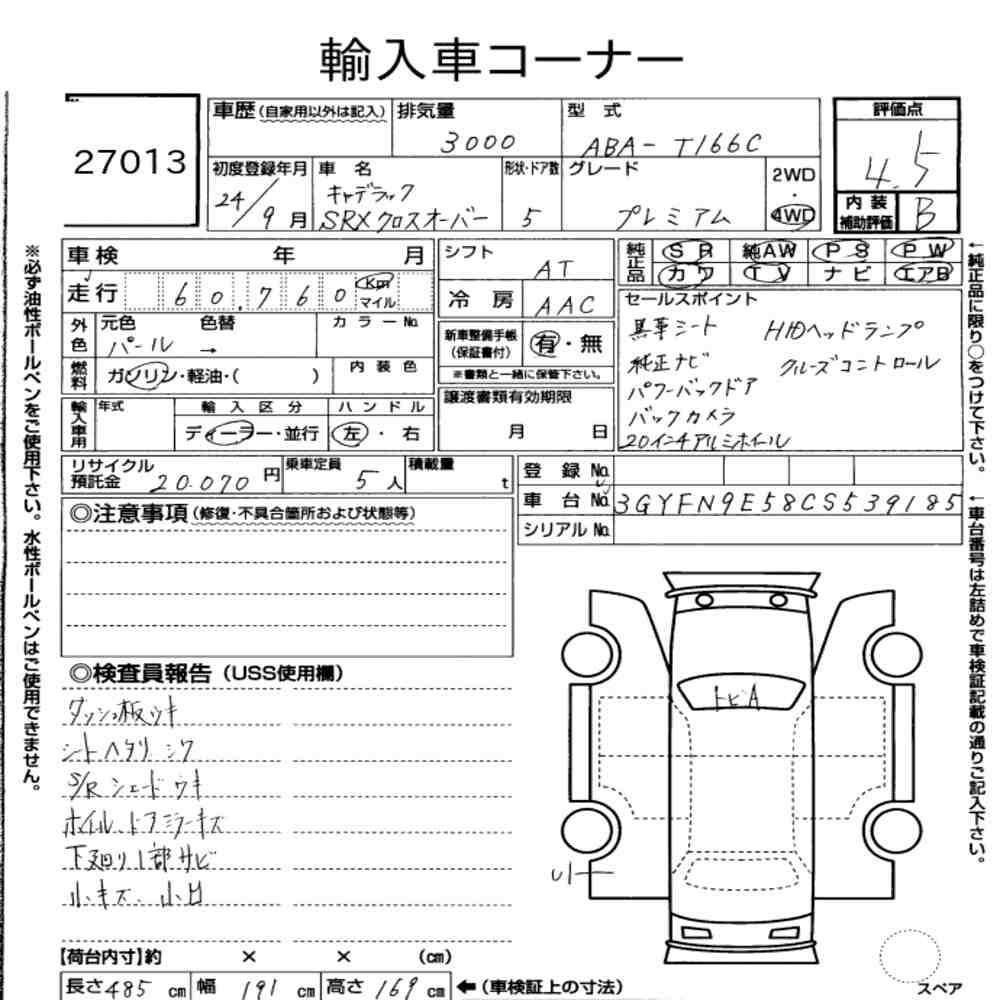 輸入車コーナー
27013
車歴(自家用以外は記入) 排気量 3000 型式 ABA-T166C 評価点 4.5
初度登録年月 24/9月 車名 キャデラック SRXクロスオーバー 形状・ドア数 5 グレード プレミアム 2WD・4WD 内装補助評価 B
車検 年 月
走行 60,760 Km マイル
外色 元色 パール 色替 → カラーNo.
燃料 ガソリン・軽油・( ) 内装色
輸入車用 年式 輸入区分 ディーラー・並行 ハンドル 左・右
シフト AT
冷房 AAC
新車整備手帳(保証書付) 有・無
※書類と一緒に保管下さい。
譲渡書類有効期限
月 日
純正品 SR 純AW PS PW
カワ TV ナビ エアB
セールスポイント
黒革シート HIDヘッドランプ
純正ナビ クルーズコントロール
パワーバックドア
バックカメラ
20インチアルミホイール
リサイクル預託金 20.070円 乗車定員 5人 積載量 t
登録No.
車台No. 3GYFN9E58CS539185
シリアルNo.
◎注意事項(修復・不具合箇所および状態等)
◎検査員報告(USS使用欄)
ダッシュ板ウキ
シートヘタリ シワ
S/R シェードウキ
ホイル、ドアミラーキズ
下廻り1部サビ
小キズ、小凹
トビA
リー
【荷台内寸】約 × × (cm)
長さ485cm 幅191cm 高さ169cm ←(車検証上の寸法)
スペア
※必ず油性ボールペンをご使用下さい。水性ボールペンはご使用できません。
←純正品に限り○をつけて下さい。
←車台番号は左詰めで車検証記載の通りご記入下さい。